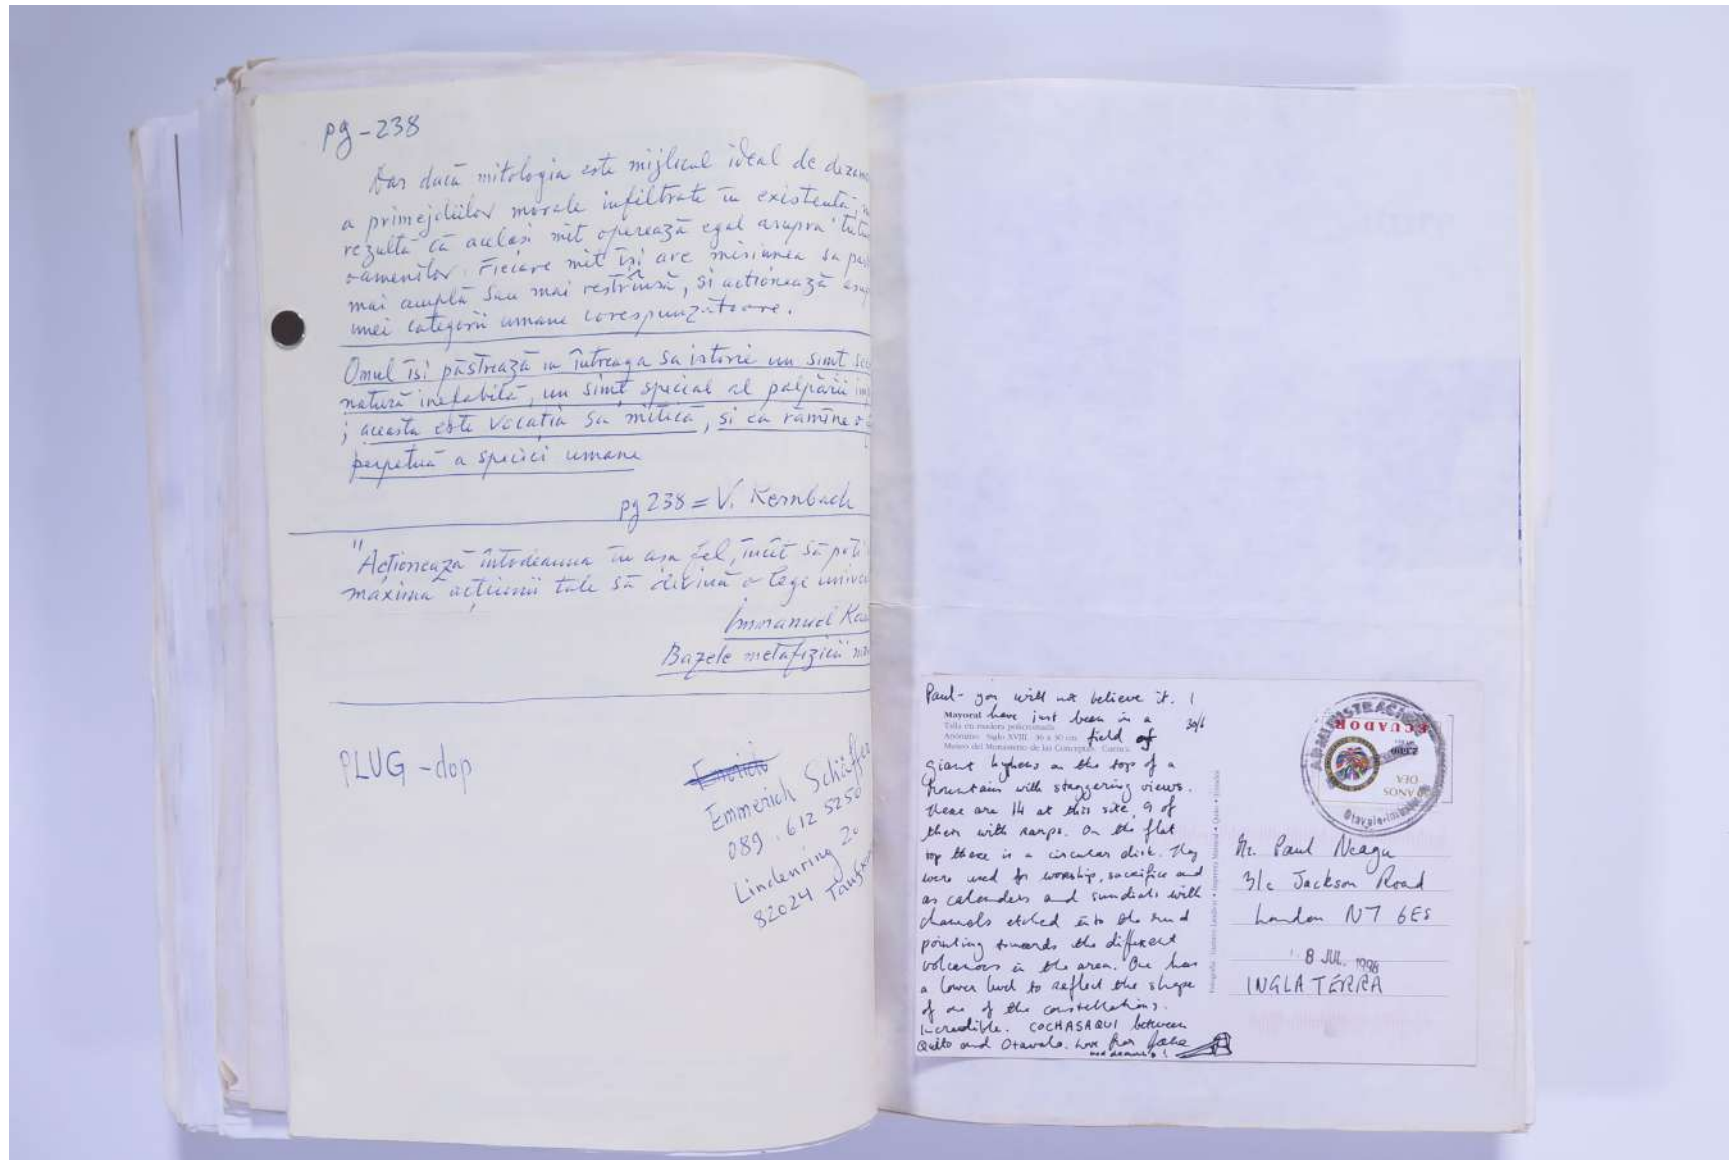 pg-238
Dar dacă mitologia este mijlocul ideal de dezam
a primejdiilor morale infiltrate în existentă, n
rezultă că acelasi mit operează egal asupra tutu
oamenilor. Fiecare mit îsi are misiunea sa pa
mai amplă sau mai restrînsă, si actionează asup
unei categorii umane corespunzătoare.
Omul îsi păstrează în întreaga sa istorie un simt se
natură inefabilă, un simț special al palpării im
; aceasta este vocatia sa mitică, si ea rămîne o
perpetuă a speciei umane
pg 238 = V. Kernbach
"Acționează întodeauna în asa fel, încît să poti
maxima acțiunii tale să devină o lege univer
Immanuel Ka
Bazele metafizicii m
PLUG-dop
Emmerich Schäffer
089.612 5250
Lindenring 20
82024 Taufk
Paul- you will not believe it. I
Mayoral have just been in a 30/6
Talla en madera policromada
Anónimo. Siglo XVIII. 36 x 30 cm field of
Museo del Monasterio de las Conceptas. Cuenca
giant on the top of a
mountain with staggering views.
There are 14 at this site, 9 of
them with ramps. On the flat
top there is a circular disk. They
were used for worship, sacrifice and
as calanders and sundials with
channels etched into the
pointing towards the different
volcanoes in the area. One has
a lower level to reflect the shape
of one of the constellations.
Incredible. COCHASAQUI between
Quito and Otavalo. Love from
ADMINISTRACION
ECUADOR
AÑOS
OEA
Otavalo-
Mr. Paul Neagu
31c Jackson Road
London N7 6ES
8 JUL. 1998
INGLATERRA